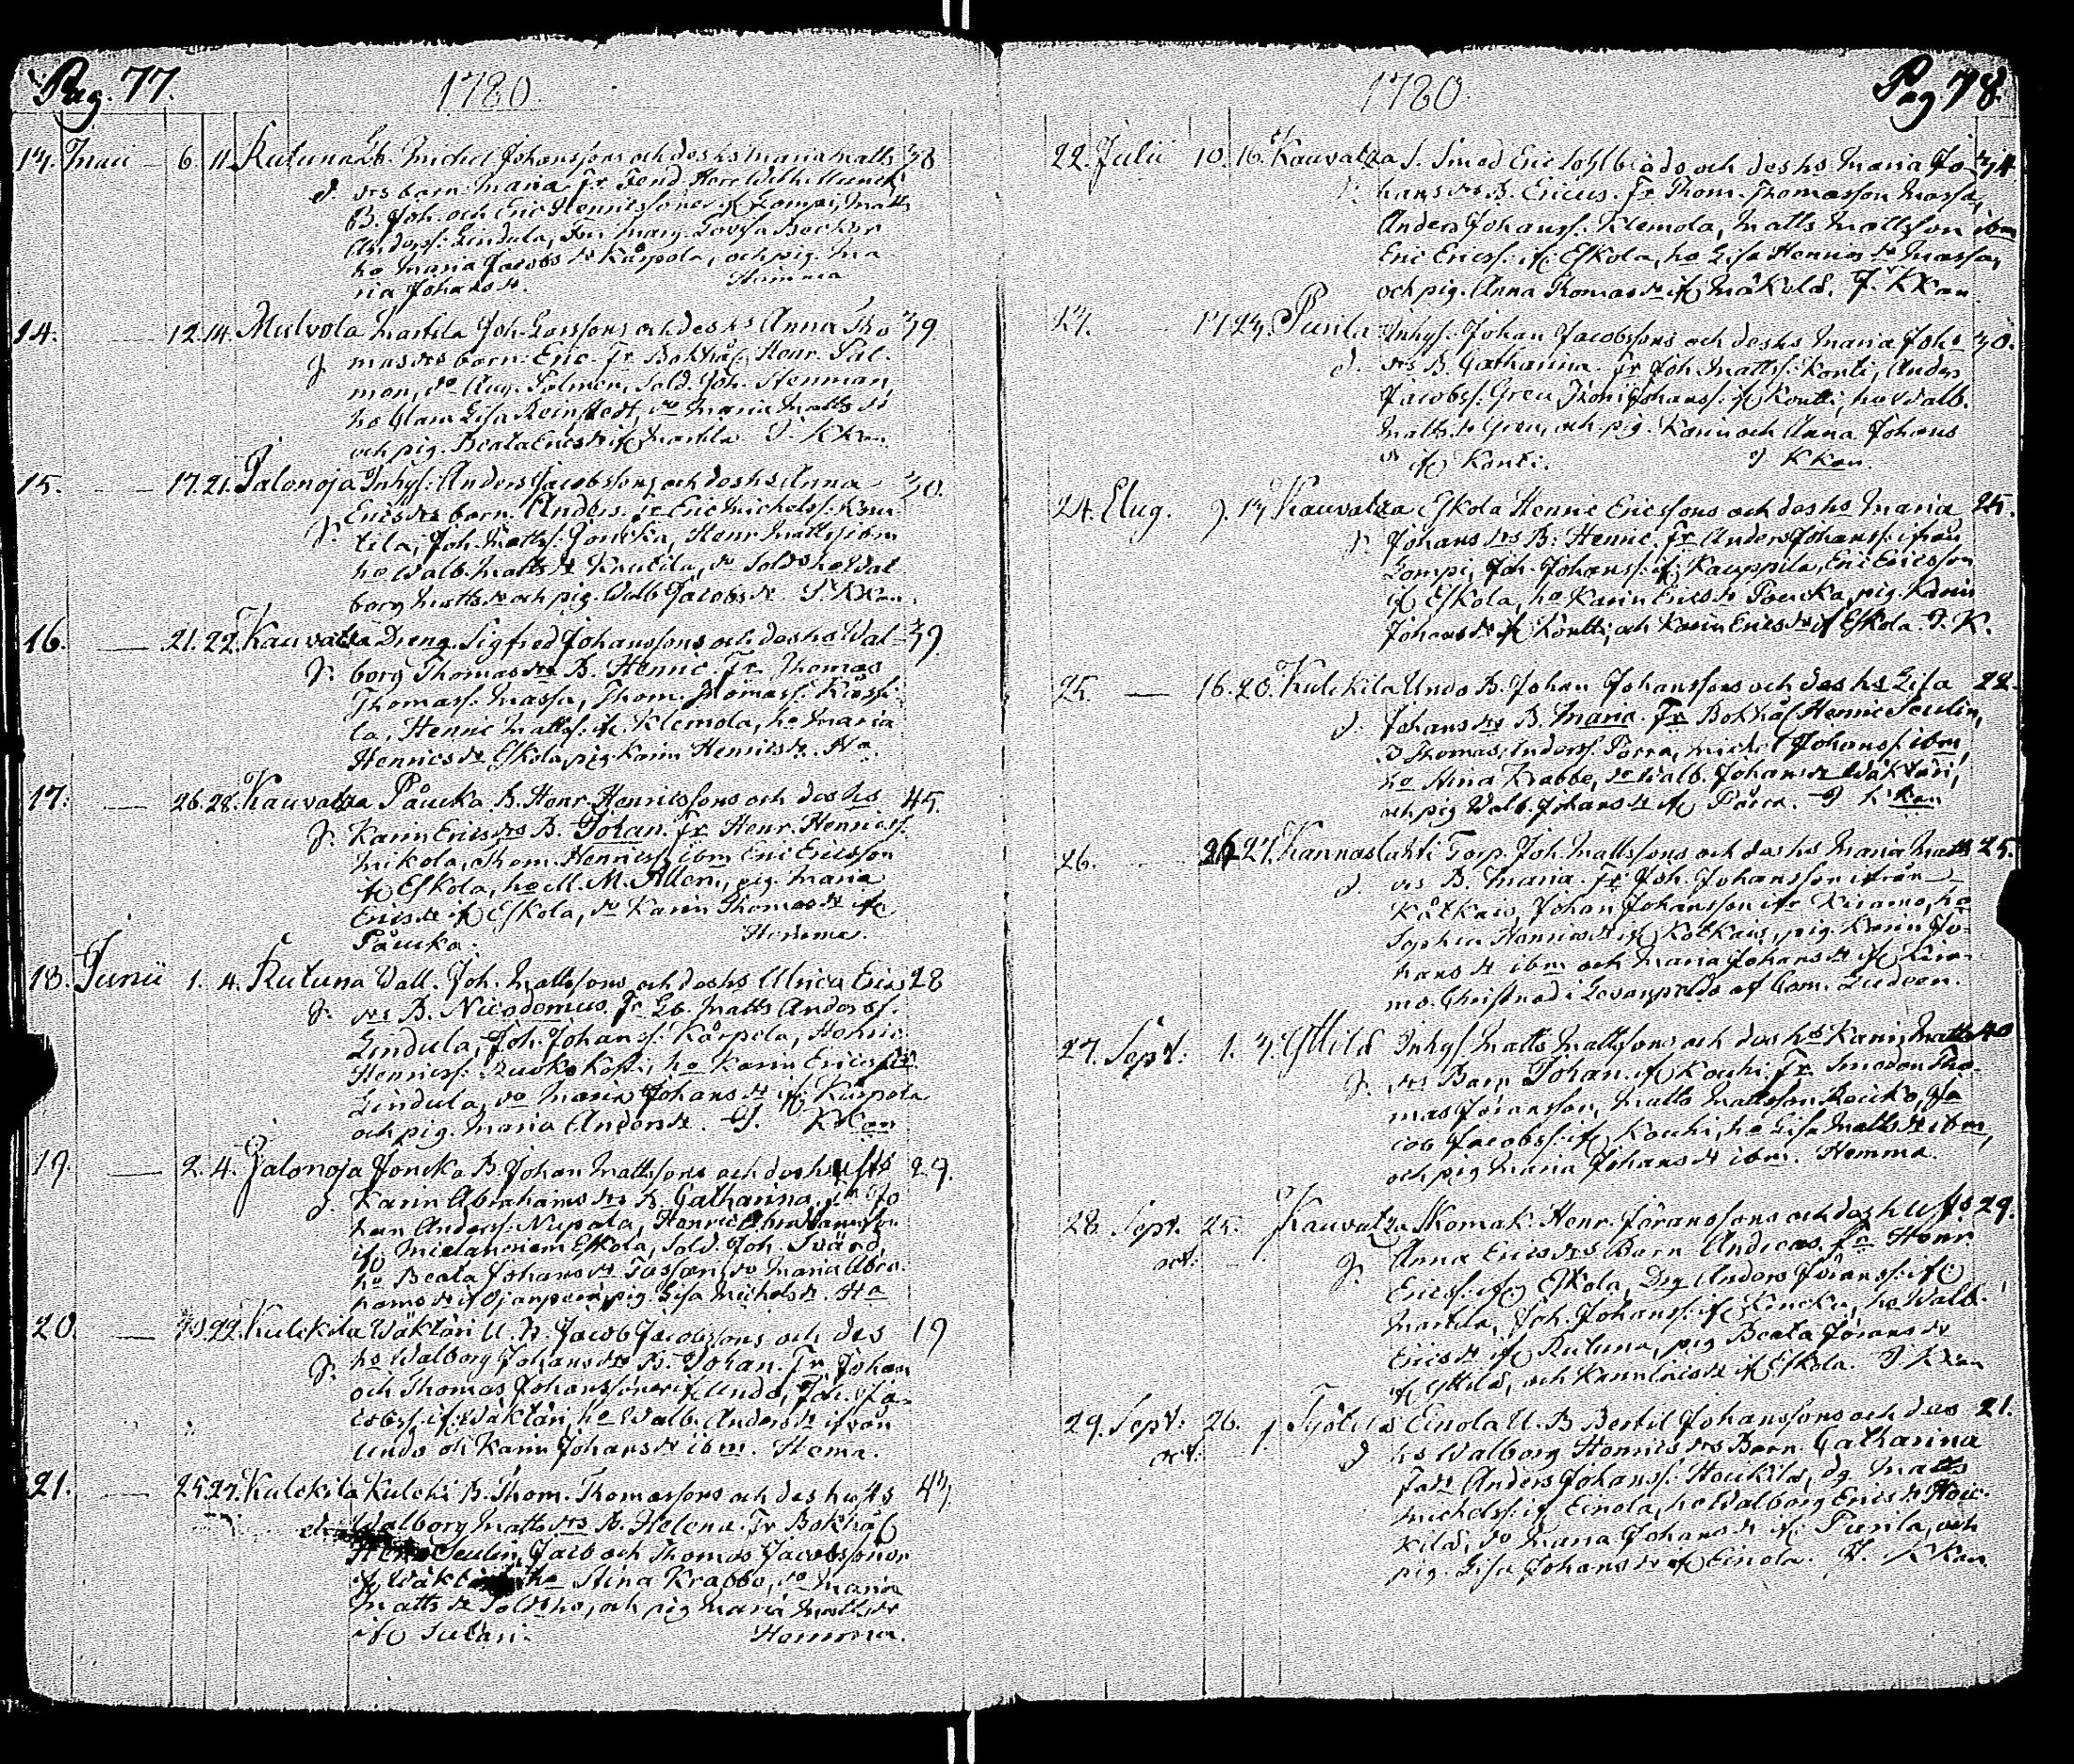 Pag. 77.
1780
13. Maii 6. 11. Rutuna Lb. Michel Johanssons och des ho Maria Matts 38
d. drs barn Maria. Fr Fend. Herr Wilh. Munck
B. Joh. och Eric Henricssoner if Lompi, Matts
Anderss: Lindula, Fru Marg. Lovisa Becker
ho Maria Jacobs dr Kårpola, och pig. Ma
ria Johans dr. Hemma
14. 12. 14. Mulvola Martila Joh. Larssons och des ho Anna Tho 39
g mas drs barn: Eric. Fr Bokhål. Henr. Pal-
men, do Aug. Palmen, Sold. Joh. Stenman,
ho Clara Lisa Reinstedt, do Maria Matts dr
och pig. Beata Erics dr if Martila. I Kkan
15. 17. 21. Jalonoja Inhys: Anders Jacobssons och des ho Anna 30.
g. Erics drs barn. Anders. Fr Eric Michelss: Knu
tila, Joh. Matts: Joncka, Henr Matts: ibm
ho Walb. Matts dr Knutila, do Sold. ho Wal
borg Matts dr och pig. Walb. Jacobs dr. I. Kkan.
16. 21. 22. Kauvatza Dreng. Sigfred Johanssons och des ho Wal- 39
g. borg Thomas drs B. Henric. Fr. Thomas
Thomass: Massa, Thom. Thomass:
la, Henric Matts: if. Klemola, ho Maria
Henrics dr Eskola, pig Karin Henrics dr. Ha.
17. 26. 28. Kauvatza Påucka B. Henr. Henricssons och des ho 45.
g. Karin Erics drs B. Johan. Fr. Henr. Henricss.
Mikola, Thom. Henricss: ibm Eric Ericsson
if Eskola, ho M. M. Allen, pig. Maria
Erics dr if Eskola, do Karin Thomas dr if
Påucka. Hemma.
18. Junii 1. 4. Rutuna Wall. Joh. Mattssons och des ho Ulrica Erics 28
g. drs B. Nicodemus. Fr Lb. Matts Anderss.
Lindula, Joh. Johanss: Kårpela, Henric
Henricss: Ruokokoski, ho Karin Ericsdr.
Lindula, do Maria Johans dr if. Kårpola
och pig. Maria Anders dr. I. Kkan
19. 2. 4. Jalonoja Joncka B. Johan Mattssons och des hustr 29.
d. Karin Abrahams drs B. Catharina. Fr Jo
han Anderss: Nupola, Henric Abrahamsson
if. Eskola, Sold. Joh. Svärd,
ho Beata Johans dr Tassari, do Maria Abra
hams dr if Ojanperä, pig. Lisa Michels dr. Ha
20. 22. Kulckila Wäktäri U. B. Jacob Jacobssons och des 19
g. ho Walborg Johans drs B. Johan. Fr. Johan
och Thomas Johanssoner if Undo, Jac. Ja-
cobss: if Wäktäri, ho Walb. Anders dr ifrån
Undo och Karin Johans dr ibm. Hema.
21. 25. 27. Kulckila Kulcki B. Thom. Thomassons och des hustr 43
d. Walborg Matts drs B. Helena. Fr Bokhål
Seulin, Jacob och Thomas Jacobssoner
if Wäktäri ho Stina Krabbe, do Maria
Matts dr Sold. ho, och pig Maria Matts dr
if Sutari. Hemma.
Pag 78.
1780.
22. Julii 10. 16. Kauvatza S. Smed Eric Sohlbäds och des ho Maria Jo- 34
g. hans drs B. Ericus. Fr Thom. Thomasson Massa,
Anders Johanss: Klemola, Matts Mattsson ibm
Eric Ericss: if Eskola, ho Lisa Henrics dr Massa,
och pig. Anna Thomas dr if Mäkolä. I. Kkan
23. 17. 23. Purila Inhys: Johan Jacobssons och des ho Maria Joh: 30.
d. drs B. Catharina. Fr Joh. Matts: Konti, Anders
Jacobss: Greu, Johanss: if Kontti, ho Walb.
Matts dr Greu, och pig. Karin och Anna Johans
dr if Konti. I Kkan.
24. Aug. 9. 13. Kauvatza Eskola Henric Ericssons och des ho Maria 25.
g. Johans drs B. Henric. Fr Anders Johanss: ifrån
Lompi, Joh. Johanss: if. Kauppila, Eric Ericsson
if Eskola, ho Karin Erics dr Poucka, pig. Karin
Johans dr if Kontti, och Karin Erics dr if Eskola. I. K.
25. 16. 20. Kulckila Undo B. Johan Johanssons och des ho Lisa 22.
d. Johans drs B. Maria. Fr Bokhål Henric Seulin,
Thomas Anderss: Pärra, Michel Johanss: ibm,
ho Stina Krabbe, do Walb. Johans dr Wäktäri,
och pig Walb. Johans dr if Pärra. I Kkan
26. 26. 27. Kannaslahti Torp. Joh. Mattssons och des ho Maria Matts 25.
d. drs B. Maria. Fr Joh. Johansson ifrån
Kåtkais, Johan Johansson ifr Kiramo, ho
Sophia Henrics dr if Kotkais, pig. Karin Jo-
hans dr ibm och Maria Johans dr if Kira-
mo. Christnad i Levanpeldo af Com. Zideen.
27. Sept. 1. 3. Yttilä Inhys Matts Mattssons och des ho Karin Matts 40
g. drs Barn Johan. if Kouhi. Fr. Smeden Tho-
mas Göransson, Matts Mattsson Reicko, Ja
cob Jacobss: if Kouhi, ho Lisa Matts dr ibm,
och pig Maria Johans dr ibm. Hemma.
28 Sept. 25. Kauvatza Skomak. Henr. Göranssons och des hustr 29.
oct. g. Anna Erics drs Barn Andreas. Fr Henr
Ericss: if Eskola, Dr. Anders Göranss: if
Martila, Joh. Johanss: if Kencku, ho Walb.
Erics dr if Rutuna, pig Beata Görans dr
if Yttilä, och Karin Erics dr if Eskola. I Kkan
29. Sept. 26. 1 Työtilä Einola U. B Bertil Johanssons och des 21.
oct. d ho Walborg Henrics drs Barn Catharina
Fadr Anders Johanss: Houkila, dg Matts
Michelss: if Einola, ho Walborg Erics dr Hou-
kila, do Maria Johans dr if. Purila, och
pig. Lisa Johans dr if Einola. I. Kkan